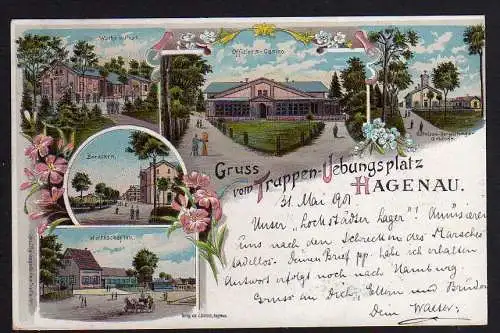 Wache u. Post.
Offiziers-Casino.
Garnison-Verwaltungs-
Gebäude.
Baracken.
Gruss
vom Truppen-Uebungsplatz
HAGENAU.
31. Mai 1901
Unser "Lockstädter Lager"! Amüsieren
uns nach den Schrecken des Marsches
tadellos. Deinen Brief pp. habe ich erhalten
Antwort erfolgt noch nach Hamburg.
Gruss an Dich, Eltern und Brüder
Dein Walter.